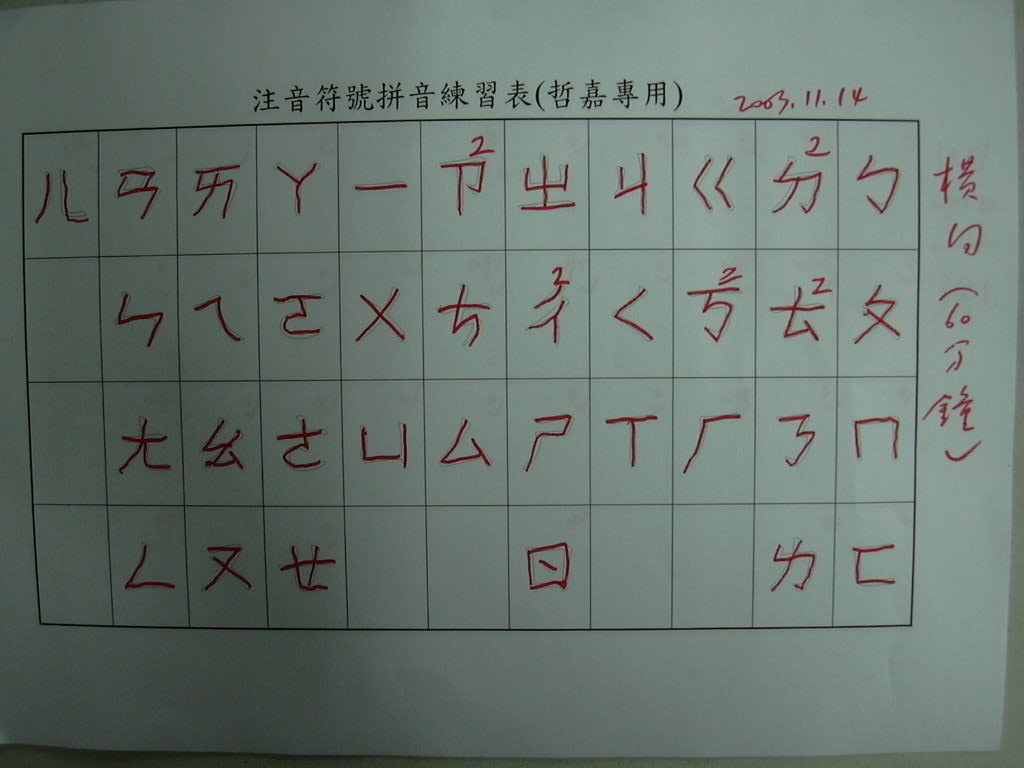 注音符號拼音練習表(哲嘉專用) 2003.11.14
ㄦ ㄢ ㄞ ㄚ 一 ㄗ2 ㄓ ㄐ ㄍ ㄉ2 ㄅ
ㄣ ㄟ ㄛ ㄨ ㄘ ㄔ2 ㄑ ㄎ2 ㄊ2 ㄆ
ㄤ ㄠ ㄜ ㄩ ㄙ ㄕ ㄒ ㄏ ㄋ ㄇ
ㄥ ㄡ ㄝ ㄖ ㄌ ㄈ
橫向(60分鐘)